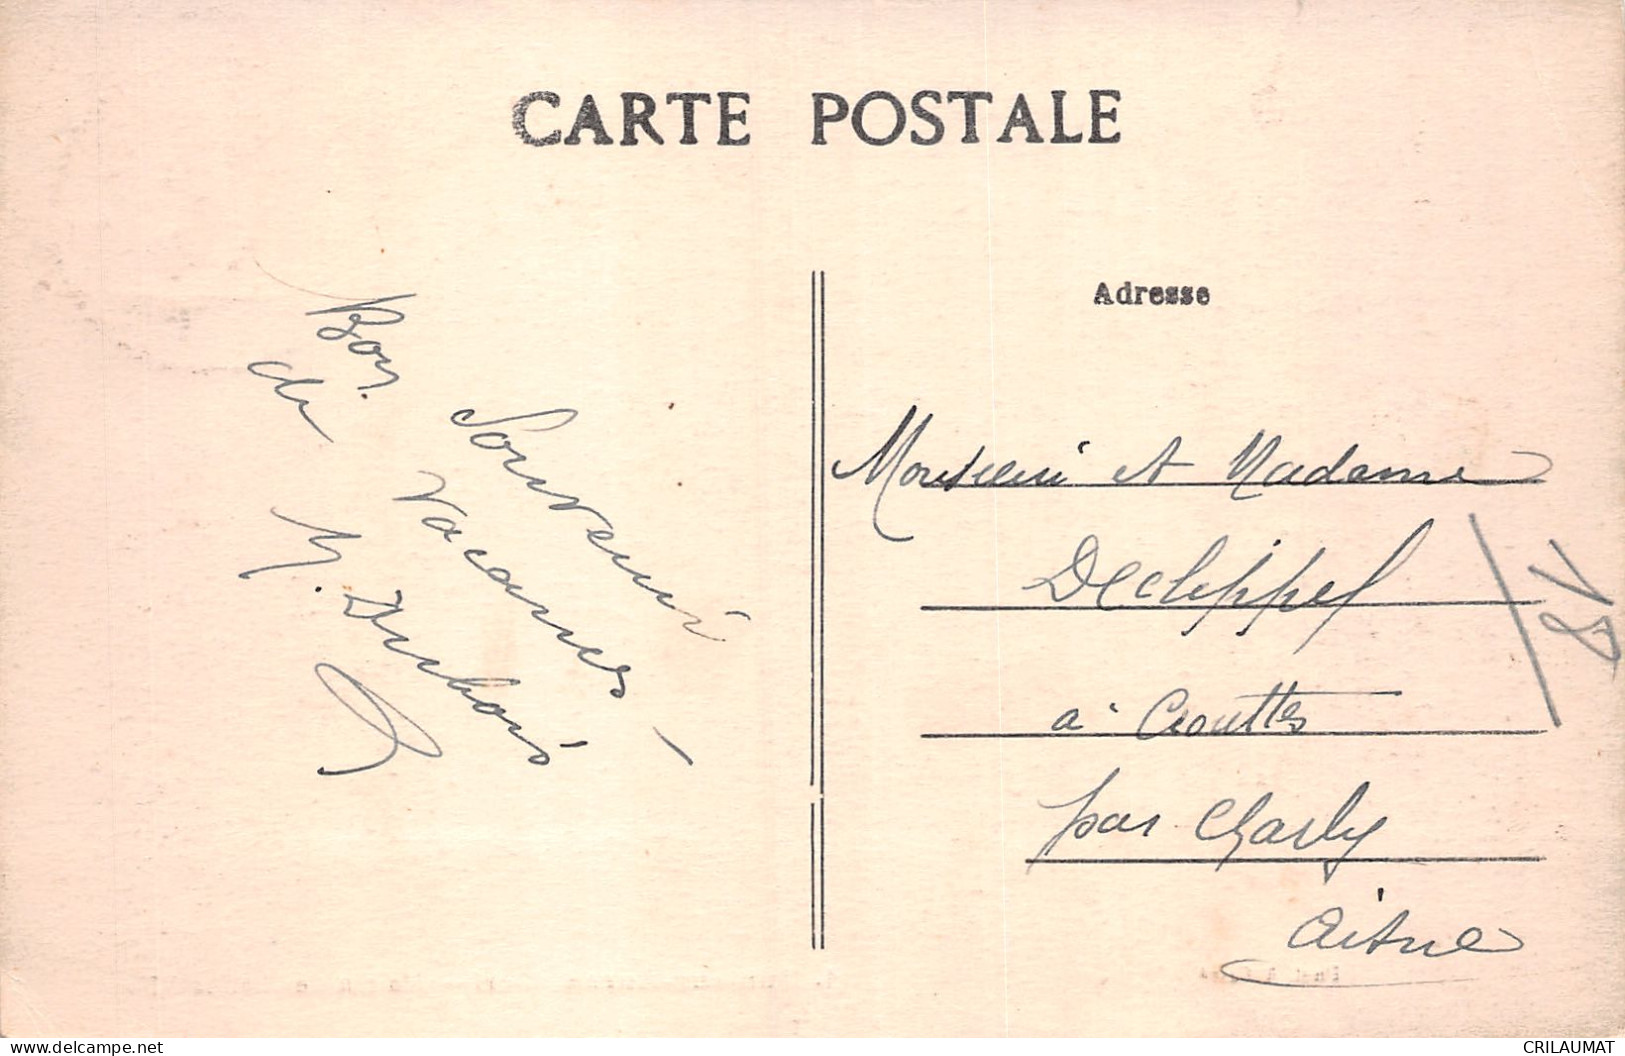 CARTE POSTALE
Bon Souvenir
de vacances -
M. Dubois
Adresse
Monsieur et Madame
Decleppel
à Crouttes
par Charly
Aisne
18
delcampe.net
CRILAUMAT